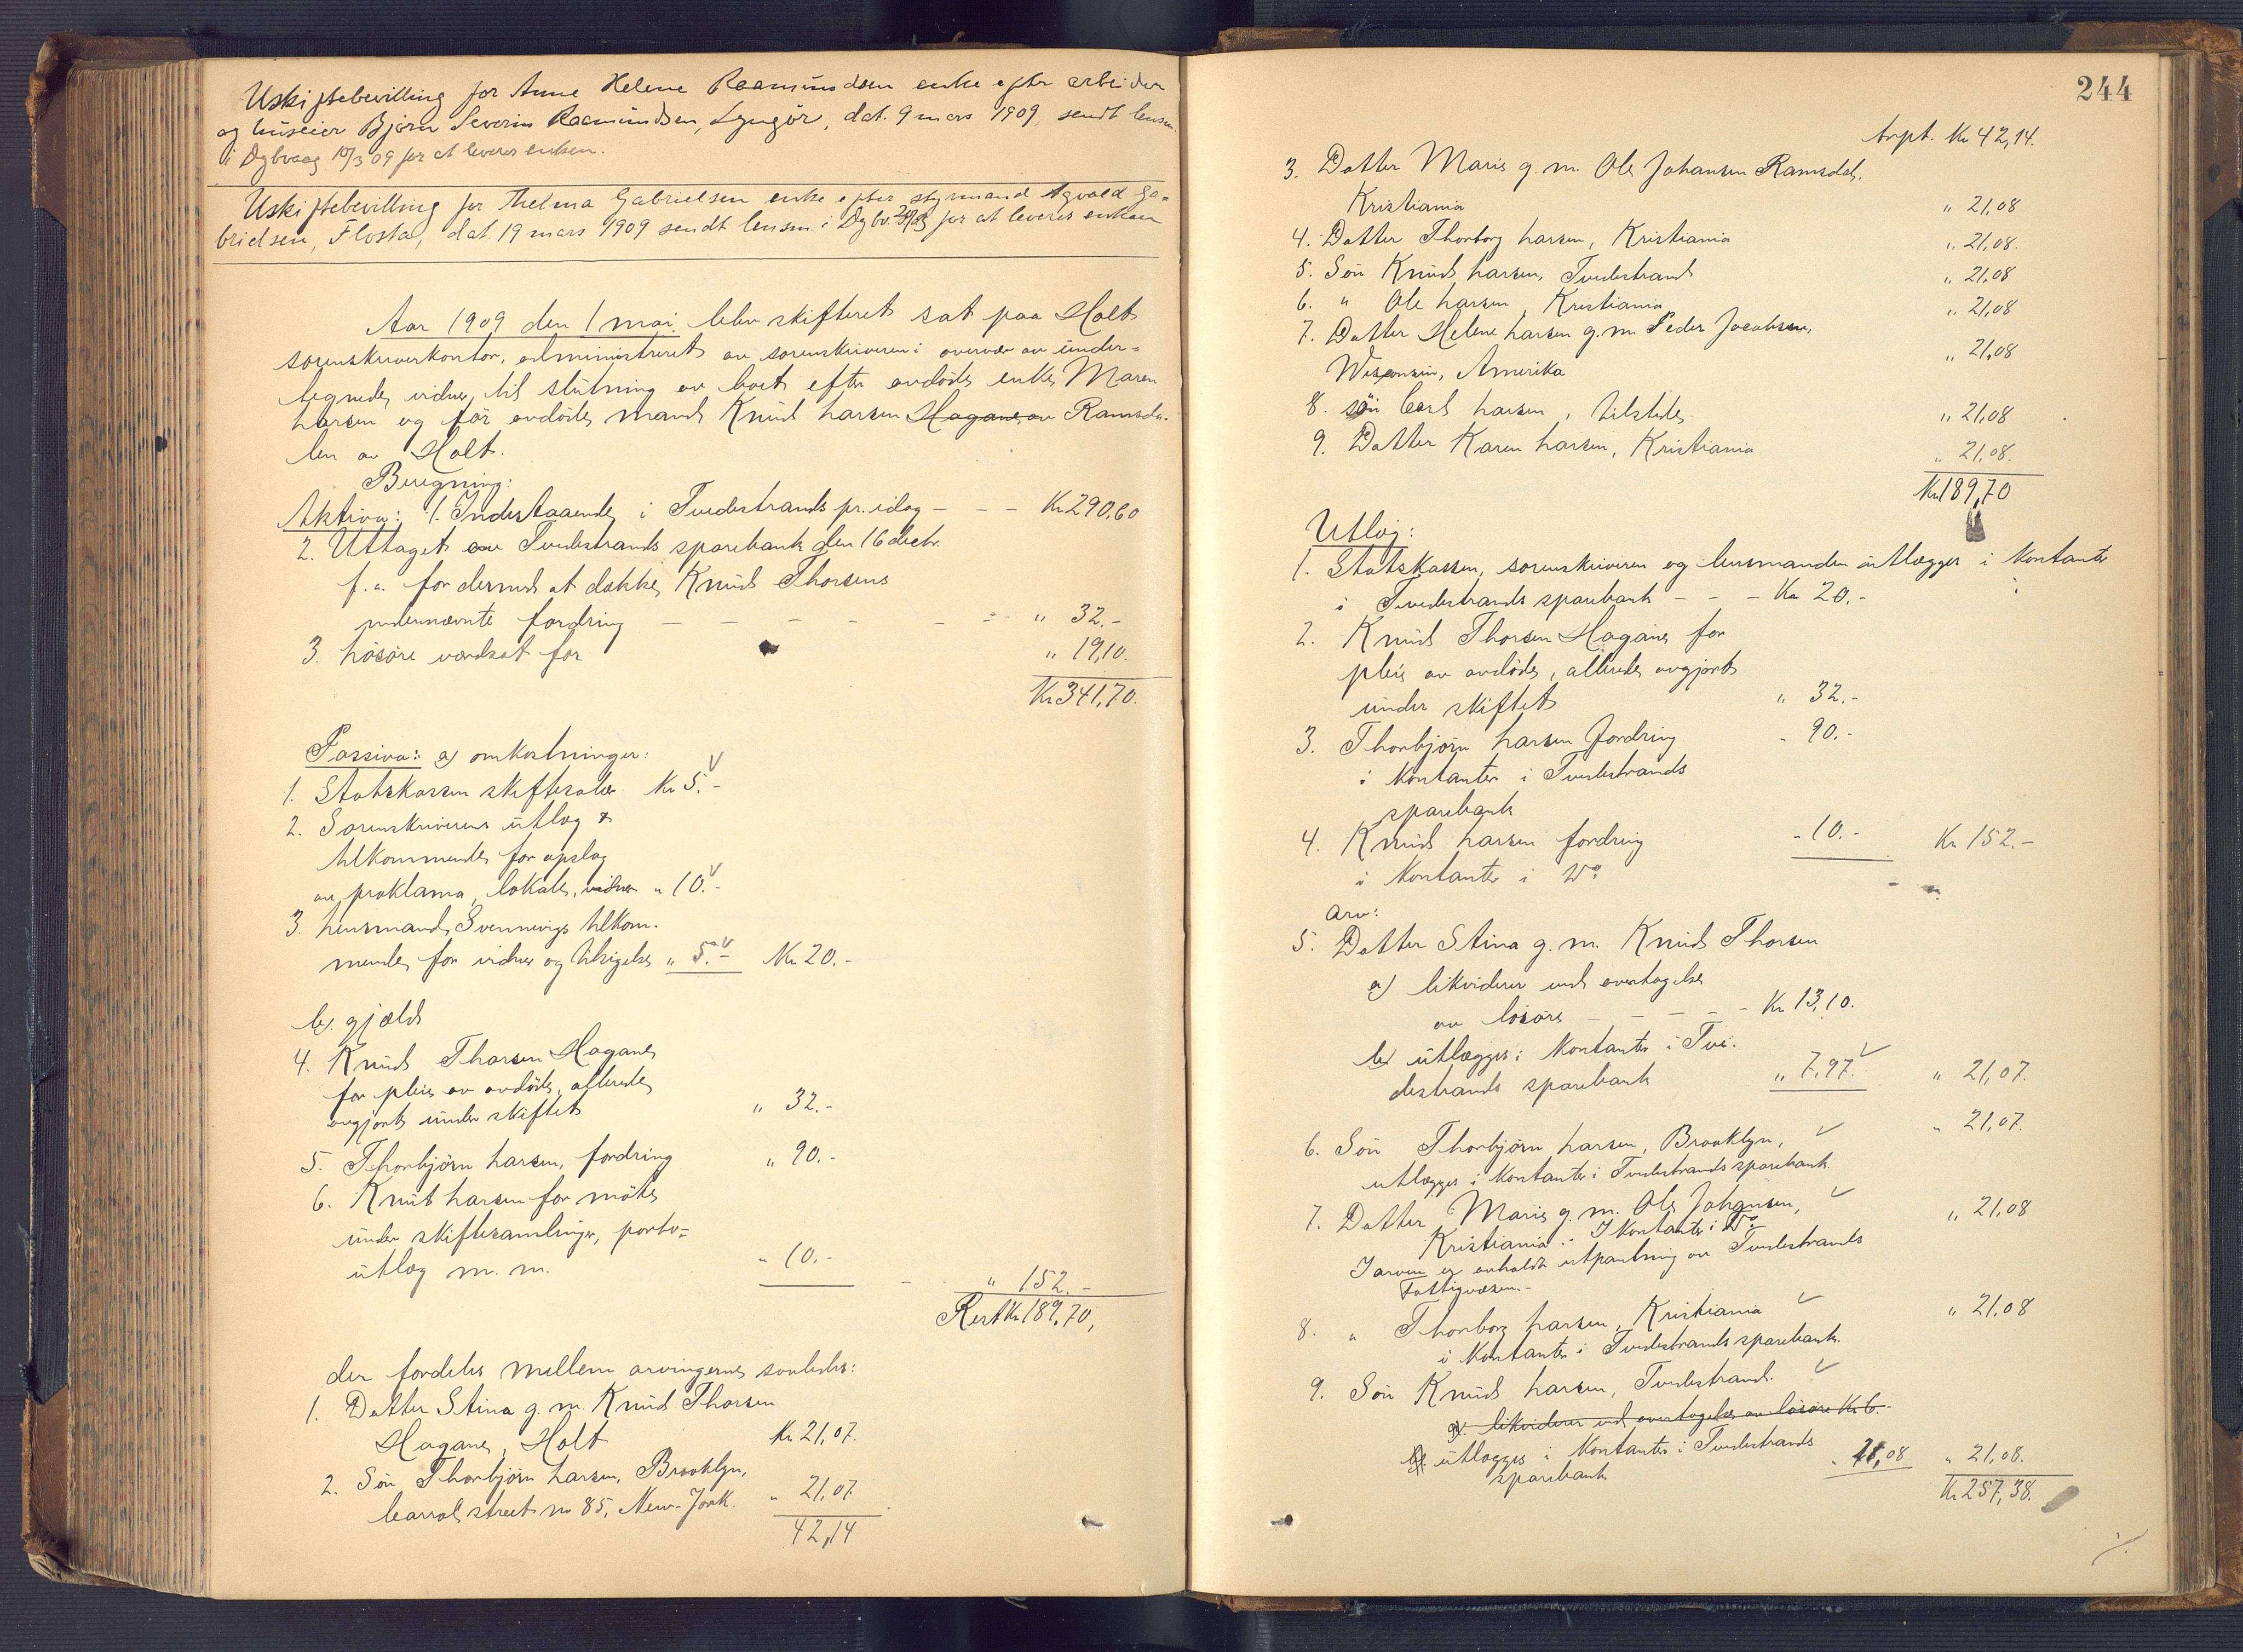 Uskiftebevilling for Anne Helene Rasmundsen enke efter arbeider
og huseier Bjørn Severin Rasmundsen, Lyngør, dat. 9 mars 1909, sendt lensm.
i Dybvaag 10/3 09 for at leveres enken.
Uskiftebevilling for Thelma Gabrielsen enke efter styrmand Agvald Ga=
brielsen, Flosta, dat 19 mars 1909 sendt lensm. i Dybv. for at leveres enken
Aar 1909 den 1 mai blev skifteret sat paa Holt
sorenskriverkontor, administreret av sorenskriveren i overvær av under=
tegnede vidner til slutning av boet efter avdøde enke Maren
Larsen og før avdøde mand Knud Larsen Hagane av Ramsda-
len av Holt.
Beregning:
Aktiva: 1. Indestaaende i Tvedestrands pr. idag - - - Kr 290,60
2. Uttaget av Tvedestrands sparebank den 16 decbr.
f. a. for dermed at dække Knud Thorsens
nedennævnte fordring - - - - - - " 32.-
3. Løsøre værdsat for " 19,10.
Kr 341,70.
Passiva: a) omkostninger:
1. Statskassen skiftesaler Kr 5.-
2. Sorenskriverens utlæg &
tilkommende for opslag
av proklama, lokale, vidner " 10.-
3. Lensmand Svennevigs tilkom-
mende for vidner og tilsigelse " 5.- Kr 20.-
b). gjæld
4. Knud Thorsen Hagane
for pleie av avdøde, allerede
avgjort under skiftet " 32.-
5. Thorbjørn Larsen, fordring " 90.-
6. Knut Larsen for møte
under skiftesamlinger, porto=
utlæg m. m. " 10.-
" 152.-
Rest Kr 189,70,
der fordeles mellem arvingerne saaledes:
1. Datter Stina g. m. Knud Thorsen
Hagane, Holt Kr 21,07.
2. Søn Thorbjørn Larsen, Brooklyn,
Carrol street no 85, New-York. " 21,07
42,14
244
Trpt. Kr 42,14.
3. Datter Marie g. m. Ole Johansen Ramsdal,
Kristiania " 21,08
4. Datter Thorborg Larsen, Kristiania " 21,08.
5. Søn Knud Larsen, Tvedestrand " 21,08
6. " Ole Larsen, Kristiania " 21,08
7. Datter Helene Larsen g. m. Peder Jacobsen,
Wisconsin, Amerika " 21,08
8. søn Carl Larsen, tilstede " 21,08
9. Datter Karen Larsen, Kristiania " 21,08.
Kr 189,70
Utlæg:
1. Statskassen, sorenskriveren og lensmanden utlægges i kontanter
i Tvedestrands sparebank - - - Kr 20.-
2. Knud Thorsen Hagane for
pleie av avdøde, allerede avgjort
under skiftet " 32.-
3. Thorbjørn Larsen fordring " 90.-
i kontanter i Tvedestrands
sparebank
4. Knud Larsen fordring " 10.- Kr 152.-
i kontanter i Do
Arv:
5. Datter Stina g. m. Knud Thorsen
a) likviderer ved overtagelse
av løsøre - - - - - Kr 13,10.
b) utlægges i kontanter i Tve-
destrands sparebank " 7,97. " 21,07.
6. Søn Thorbjørn Larsen, Brooklyn, " 21,07.
utlægges i kontanter i Tvedestrands sparebank.
7. Datter Marie g. m. Ole Johansen, " 21,08
Kristiania .- I kontanter i Do
I arven er avholdt utpantning av Tvedestrands
Fattigvæsen.-
8. " Thorborg Larsen, Kristiania " 21,08
i kontanter i Tvedestrands sparebank.
9. Søn Knud Larsen, Tvedestrand.
a). likviderer ved overtagelse av løsøre Kr 6.-
b). utlægges i kontanter i Tvedestrands
sparebank " 21,08 " 21,08.
Kr 257,38.